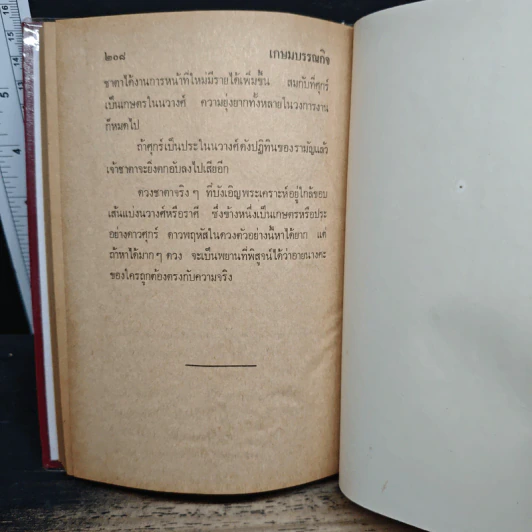 ๒๐๘ เกษมบรรณกิจ
ชาตาได้งานการหน้าที่ใหม่มีรายได้เพิ่มขึ้น สมกับที่ศุกร์
เป็นเกษตรในนวางศ์ ความยุ่งยากทั้งหลายในวงการงาน
ก็หมดไป
ถ้าศุกร์เป็นประในนวางศ์ดังปฏิทินของรามัญแล้ว
เจ้าชาตาจะยิ่งตกอับลงไปเสียอีก
ดวงชาตาจริง ๆ ที่บังเอิญพระเคราะห์อยู่ใกล้ขอบ
เส้นแบ่งนวางศ์หรือราศี ซึ่งข้างหนึ่งเป็นเกษตรหรือประ
อย่างดาวศุกร์ ดาวพฤหัสในดวงตัวอย่างนี้หาได้ยาก แต่
ถ้าหาได้มาก ๆ ดวง จะเป็นพยานที่พิสูจน์ได้ว่าอายนางคะ
ของใครถูกต้องตรงกับความจริง
15
16
5
4